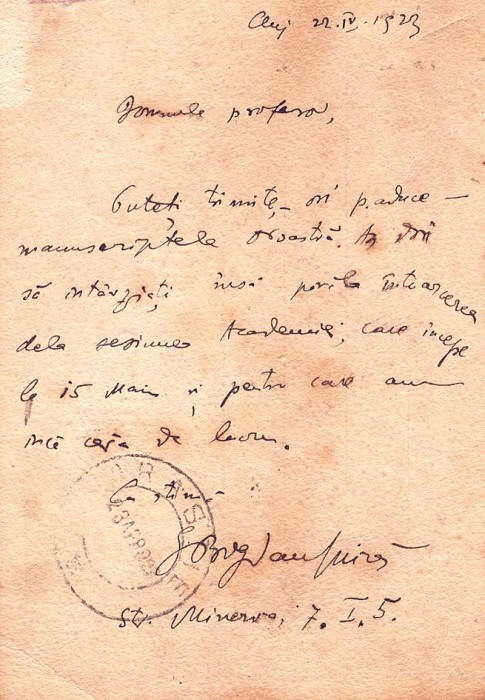 Cluj 22.IV.1923
Domnule profesor,
Puteți trimite – ori aduce –
manuscriptele Dvoastră. Aș dori
să întârziați însă până la întoarcerea
dela sesiunea Academiei, care începe
la 15 Maiu și pentru care am
încă ceva de lucru.
Cu stimă
G Bogdan-Duică
St. Minervei, 7. I. 5.